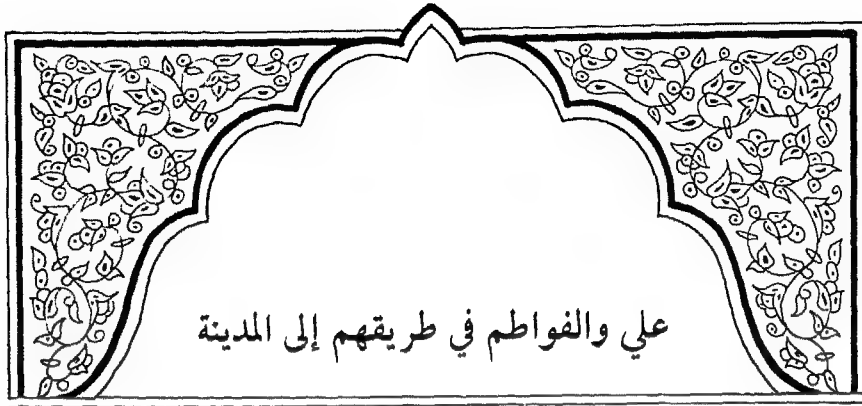 علي والفواطم في طريقهم إلى المدينة